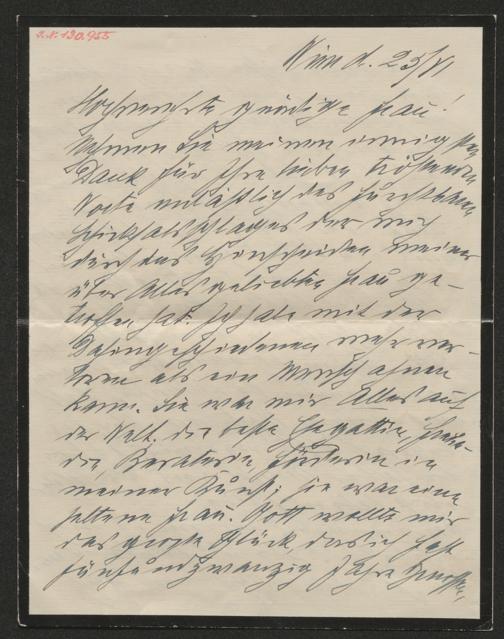 I.N. 190.955
Wien d. 25/VI
Hochverehrte gnädige Frau!
Nehmen Sie meinen innigsten
Dank für Ihre lieben tröstenden
Worte anläßlich des furchtbaren
Schicksalsschlages der mich
durch das Hinscheiden meiner
über Alles geliebten Frau ge-
troffen hat. Ich habe mit der
Dahingeschiedenen mehr ver-
loren als ein Mensch ahnen
kann. Sie war mir Alles auf
der Welt. die beste Ehegattin, Freun-
din, Beraterin, Förderin in
meiner Kunst; sie war eine
seltene Frau. Gott wollte mir
das große Glück, das ich fast
fünfundzwanzig Jahre